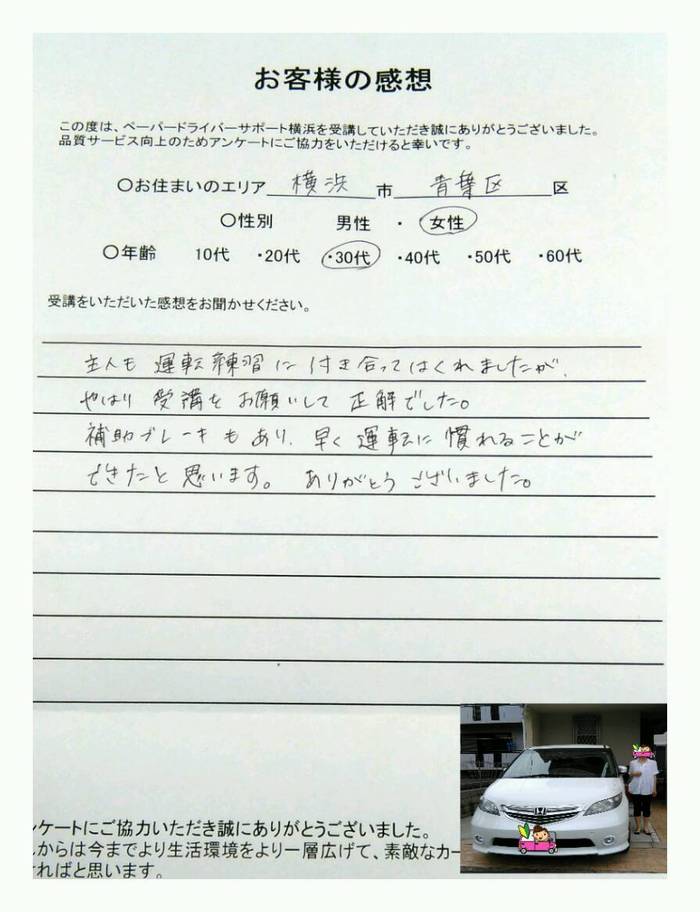 お客様の感想
この度は、ペーパードライバーサポート横浜を受講していただき誠にありがとうございました。
品質サービス向上のためアンケートにご協力をいただけると幸いです。
〇お住まいのエリア 横浜 市 青葉区 区
〇性別 男性 ・ 女性
〇年齢 10代 ・20代 ・30代 ・40代 ・50代 ・60代
受講をいただいた感想をお聞かせください。
主人も 運転練習に 付き合ってはくれましたが、
やはり 受講を お願いして 正解でした。
補助ブレーキもあり、早く運転に慣れることが
できたと思います。 ありがとうございました。
ンケートにご協力いただき誠にありがとうございました。
からは今までより生活環境をより一層広げて、素敵なカー
ればと思います。